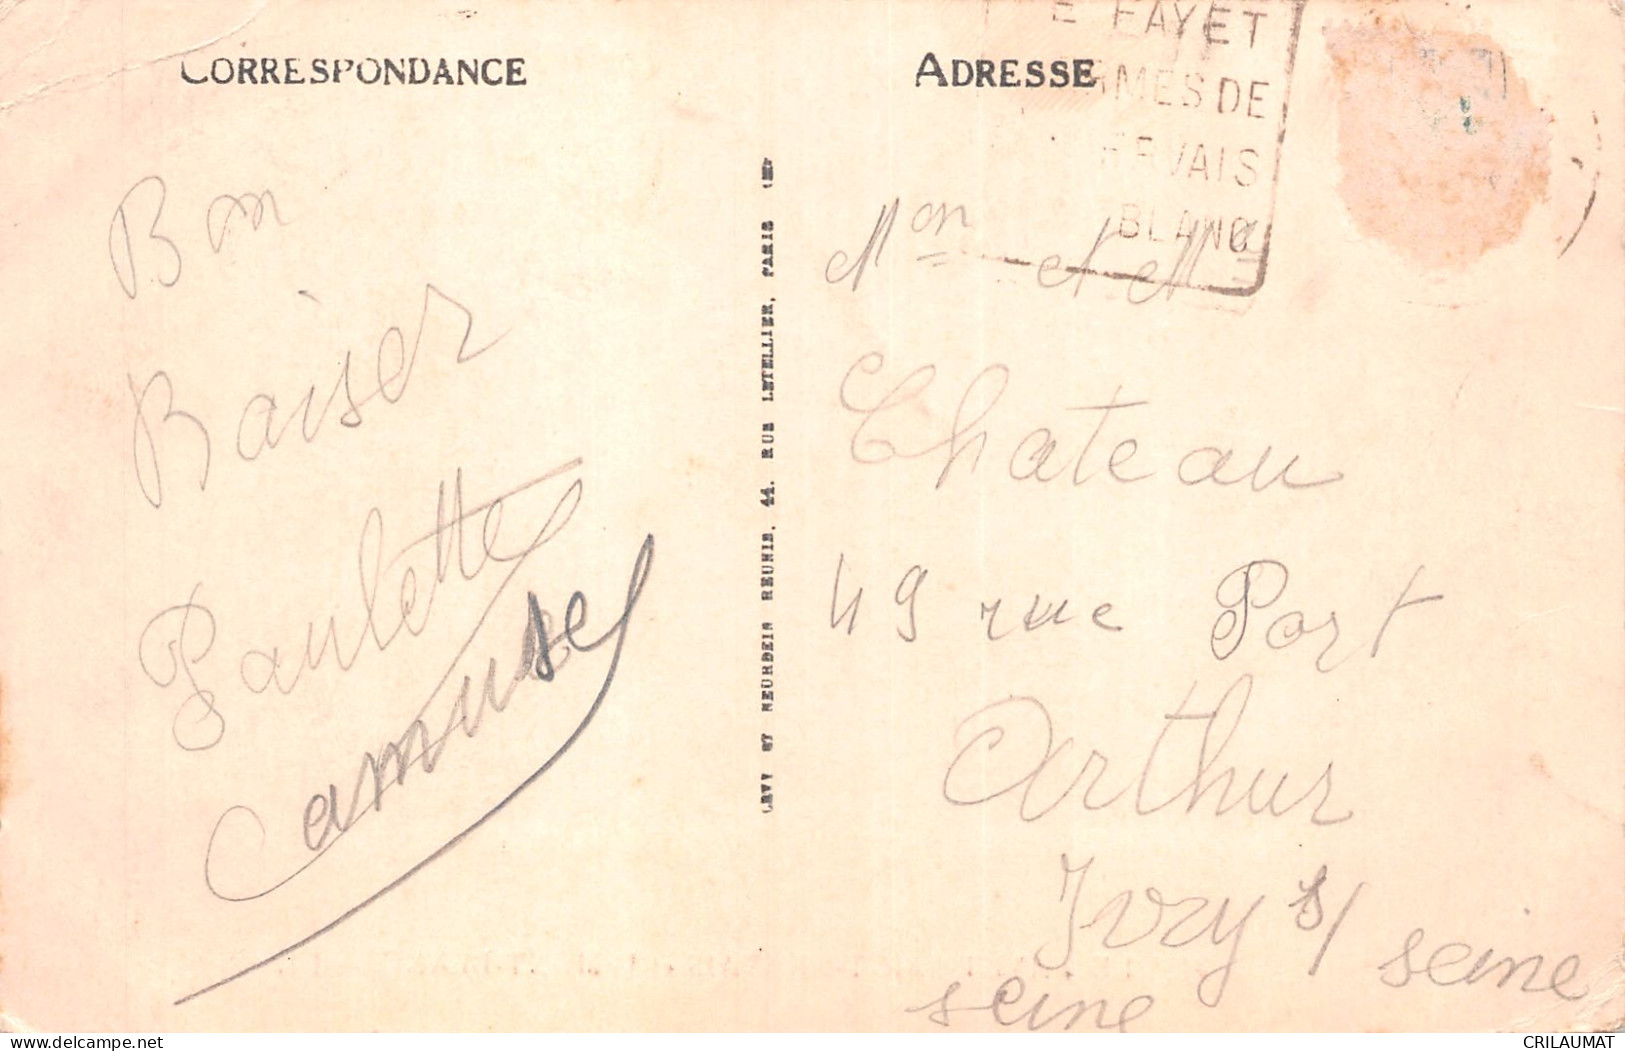 CORRESPONDANCE
Bon
Baiser
Paulette
Camuse
LEVY ET NEURDEIN REUNIS, 44, RUE LETELLIER, PARIS
ADRESSE
E FAYET
RMES DE
ERVAIS
BLANC
Mon et Me
Chateau
49 rue Port
Arthur
Ivry s/ seine
seine
CRILAUMAT